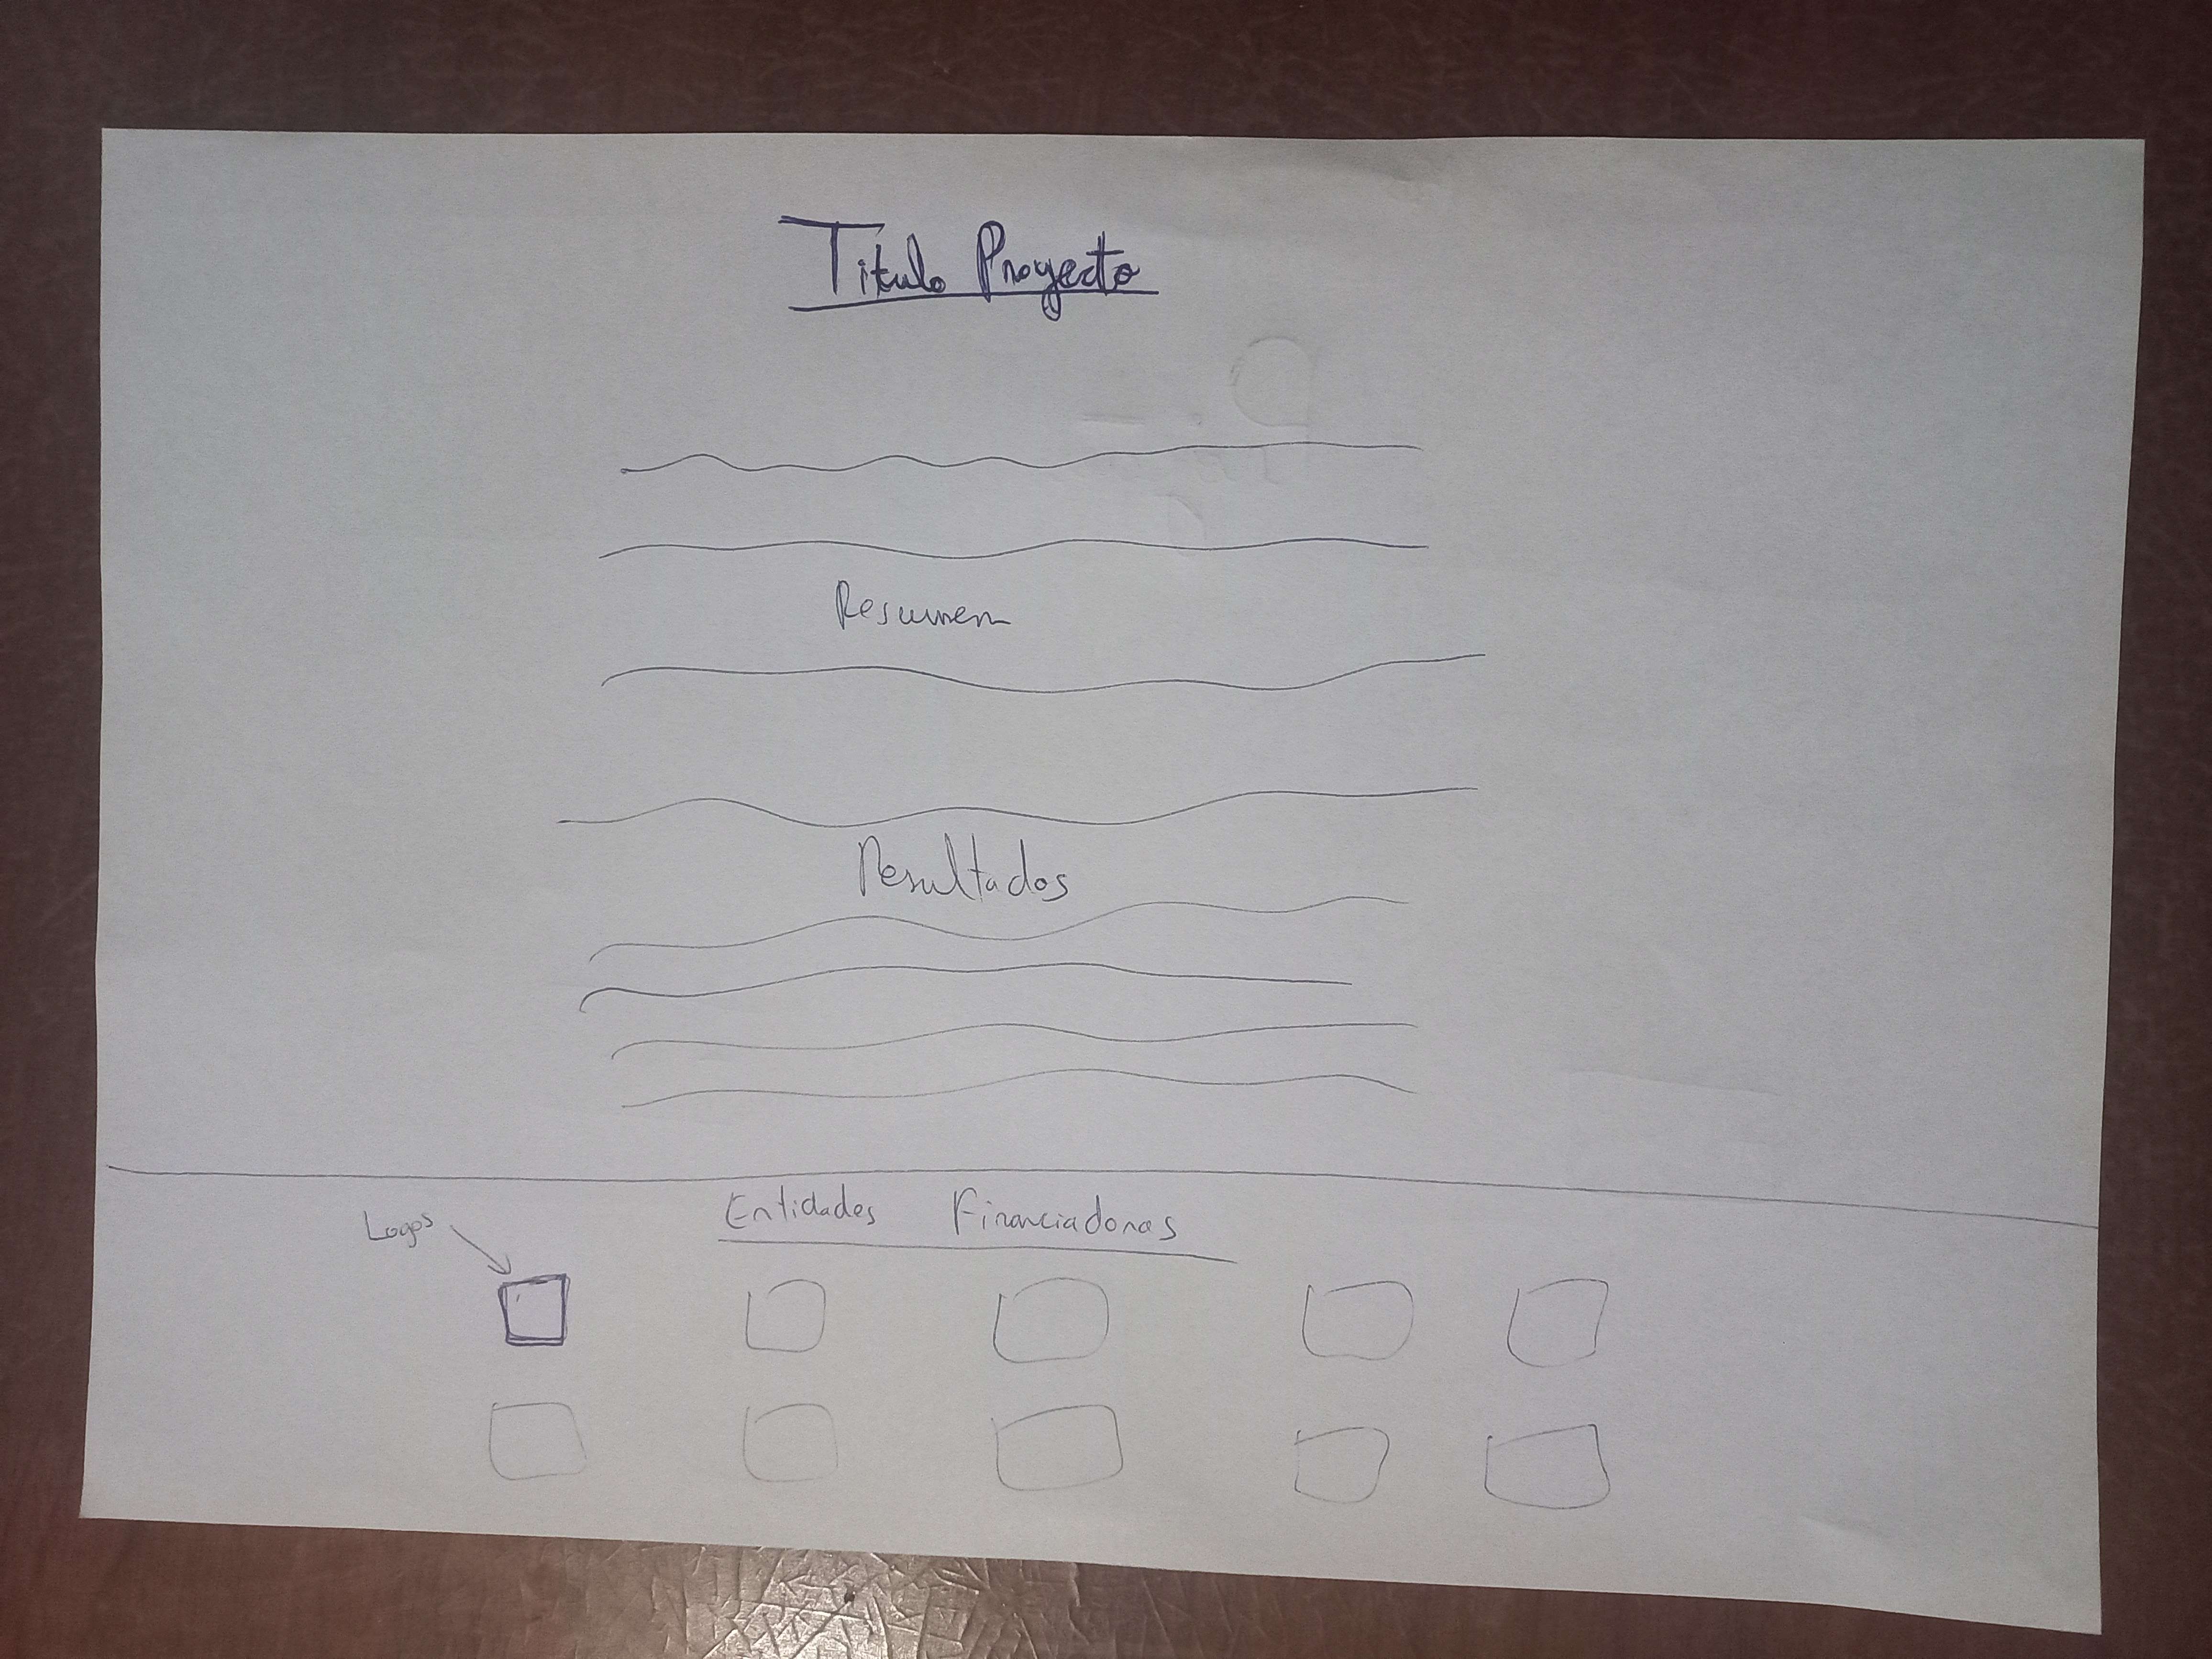 Titulo Proyecto
Resumen
Resultados
Entidades Financiadoras
Logos